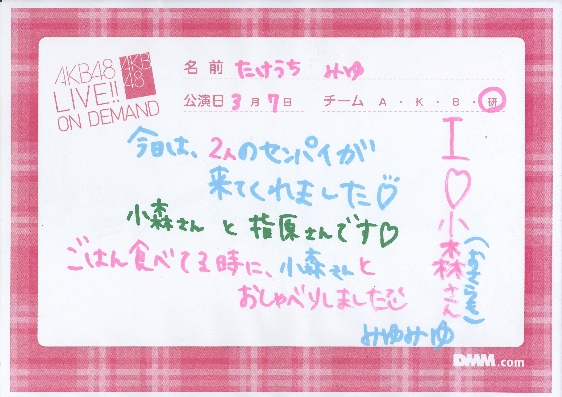 AKB48
LIVE!!
ON DEMAND
AKB
48
名前 たけうち みゆ
公演日 3月7日 チーム A・K・B・研
今日は、2人のセンパイが
来てくれました♡
小森さん と 指原さんです♡
ごはん食べてる時に、小森さんと
おしゃべりしました
みゆみゆ
I♡小森さん
DMM.com